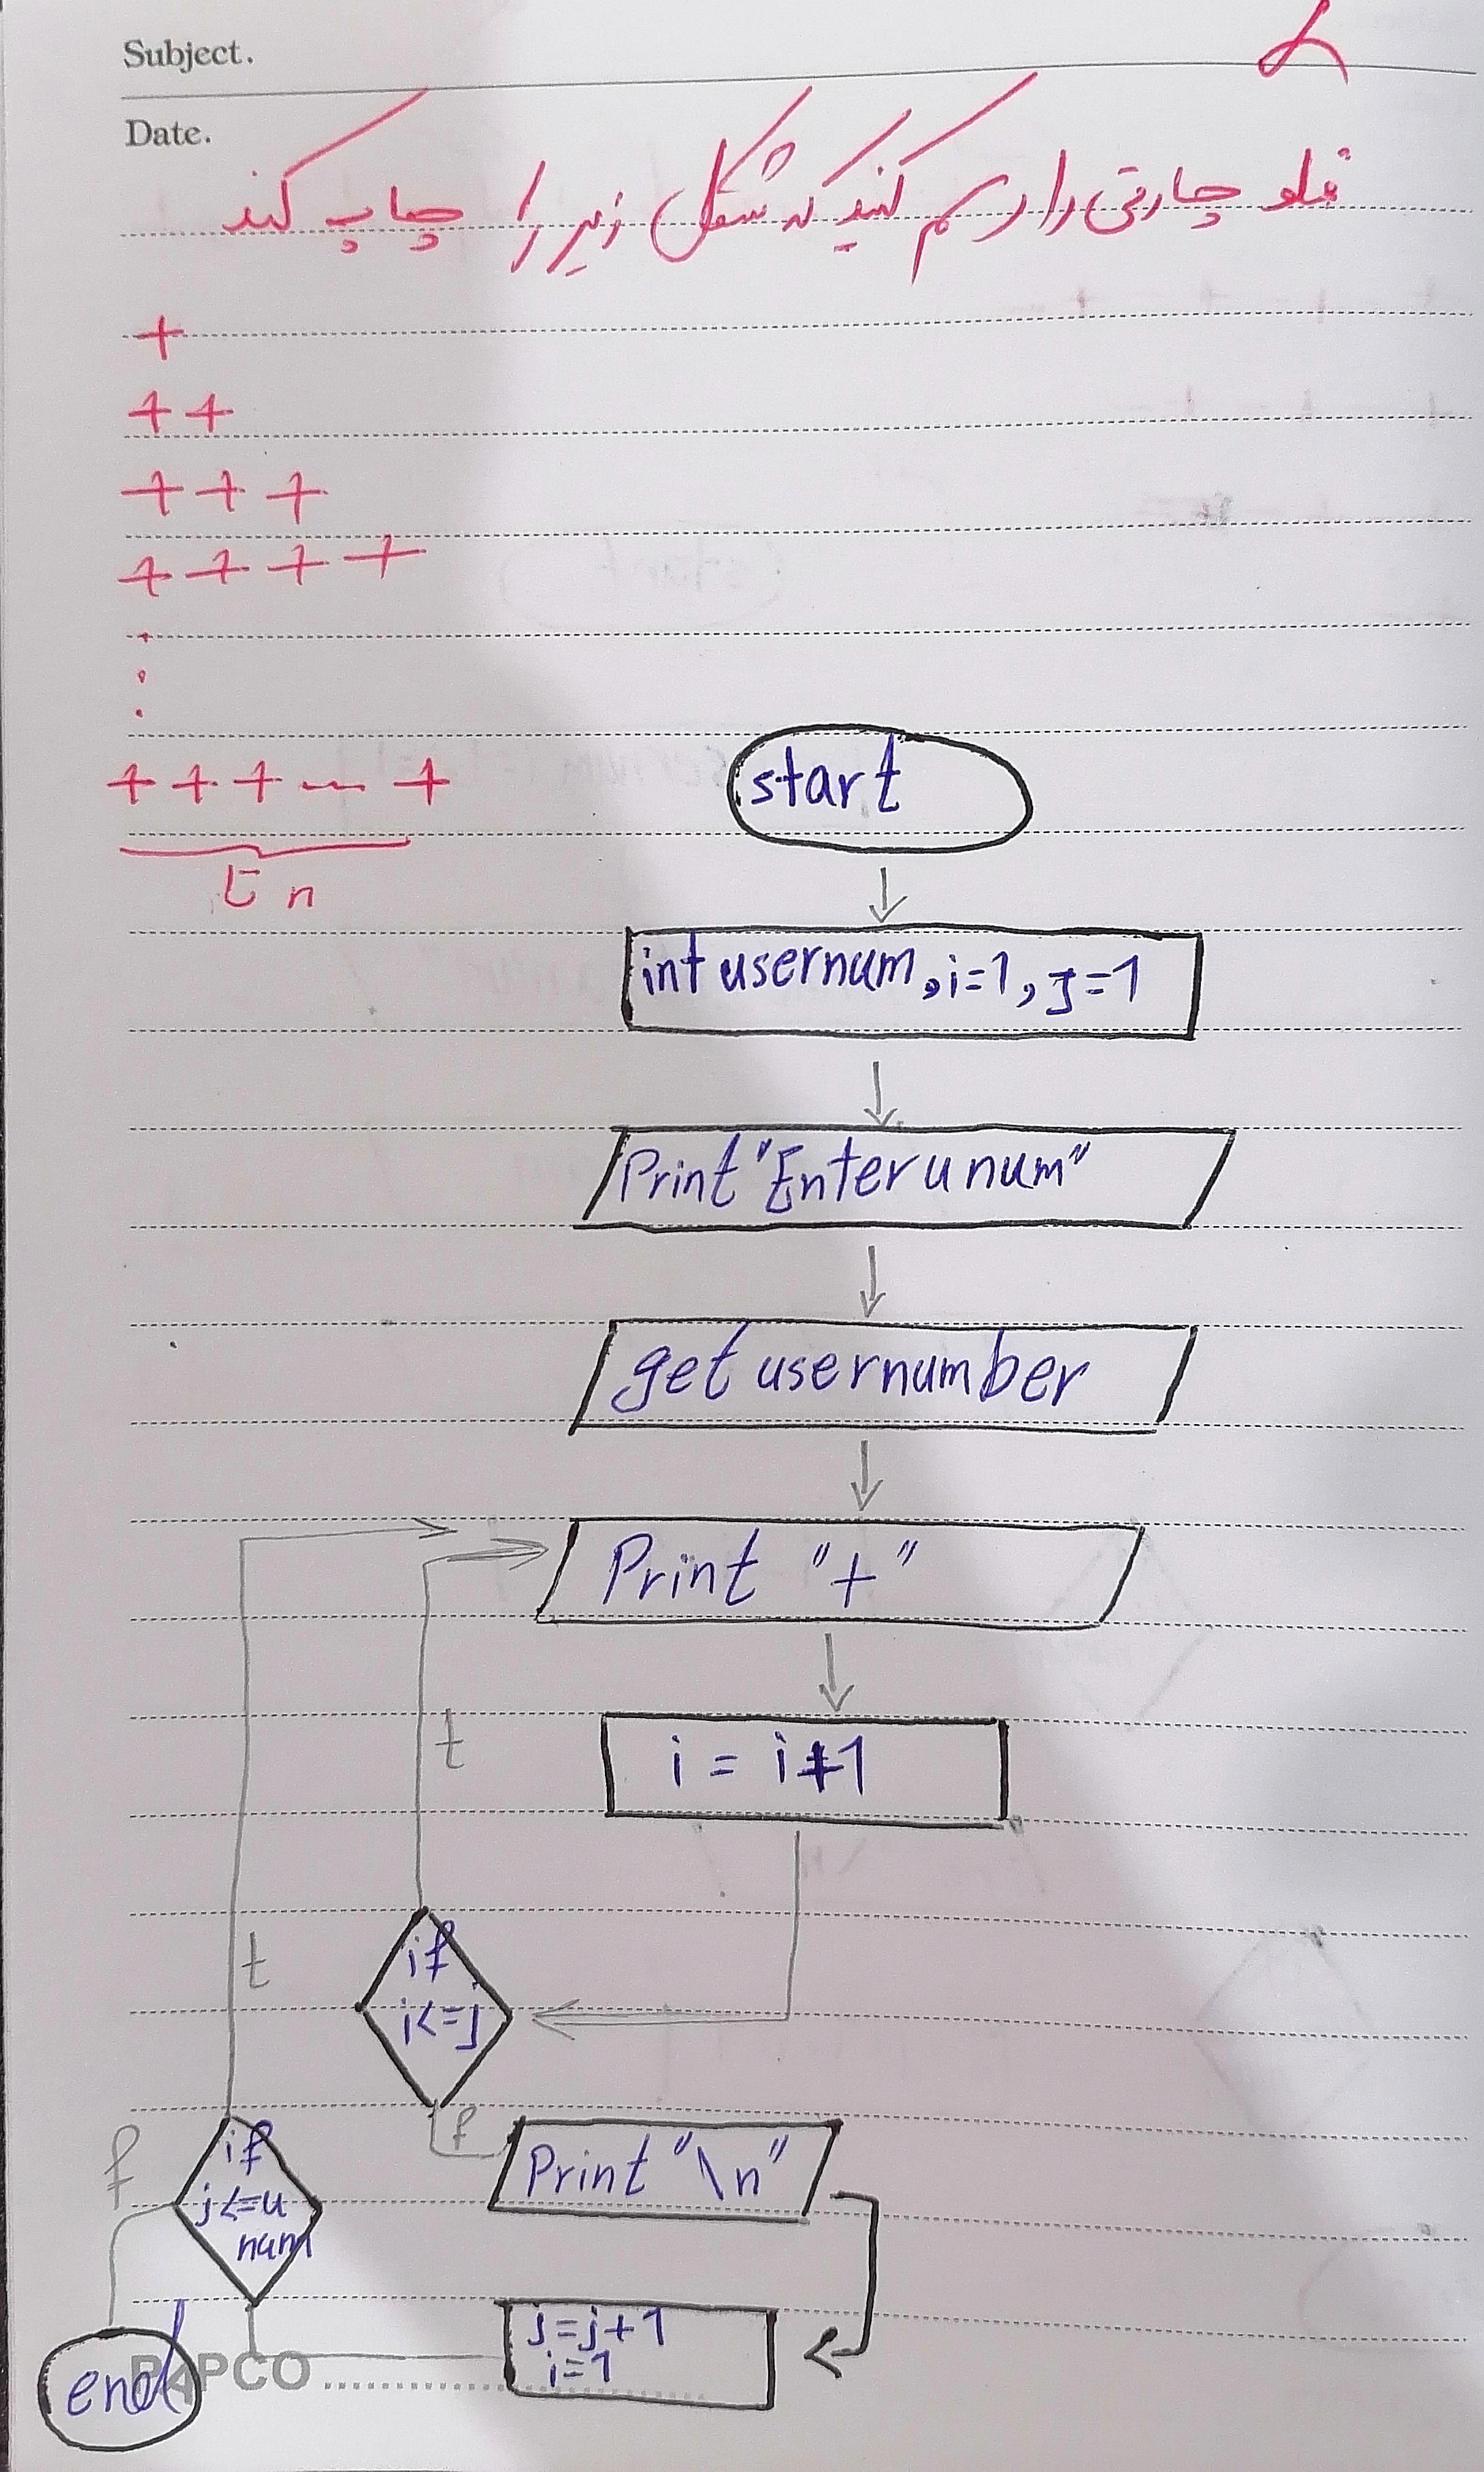 Subject.
Date.
فلو چارتی را رسم کنید که شکل زیر را چاپ کند
+
+ +
+ + +
+ + + +
+ + + --- +
n تا
start
int usernum, i=1, j=1
Print "Enter u num"
get usernumber
Print "+"
i = i+1
t
if
i<=j
t
f
Print "\n"
f
if
j<=u
num
j=j+1
i=1
end
PAPCO